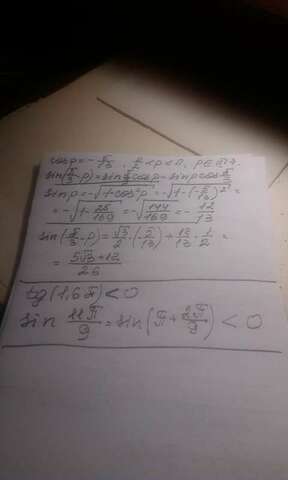 cos p = -5/13, π/2 < p < π, p ∈ II ч.
sin(π/3 - p) = sin π/3 cos p - sin p cos π/3
sin p = -√(1 - cos² p) = √(1 - (-5/13)²) =
= -√(1 - 25/169) = -√(144/169) = -12/13
sin(π/3 - p) = √3/2 · (5/13) + 12/13 · 1/2 =
= (5√3 + 12)/26
tg(1,6π) < 0
sin 11π/9 = sin(π + 2π/9) < 0